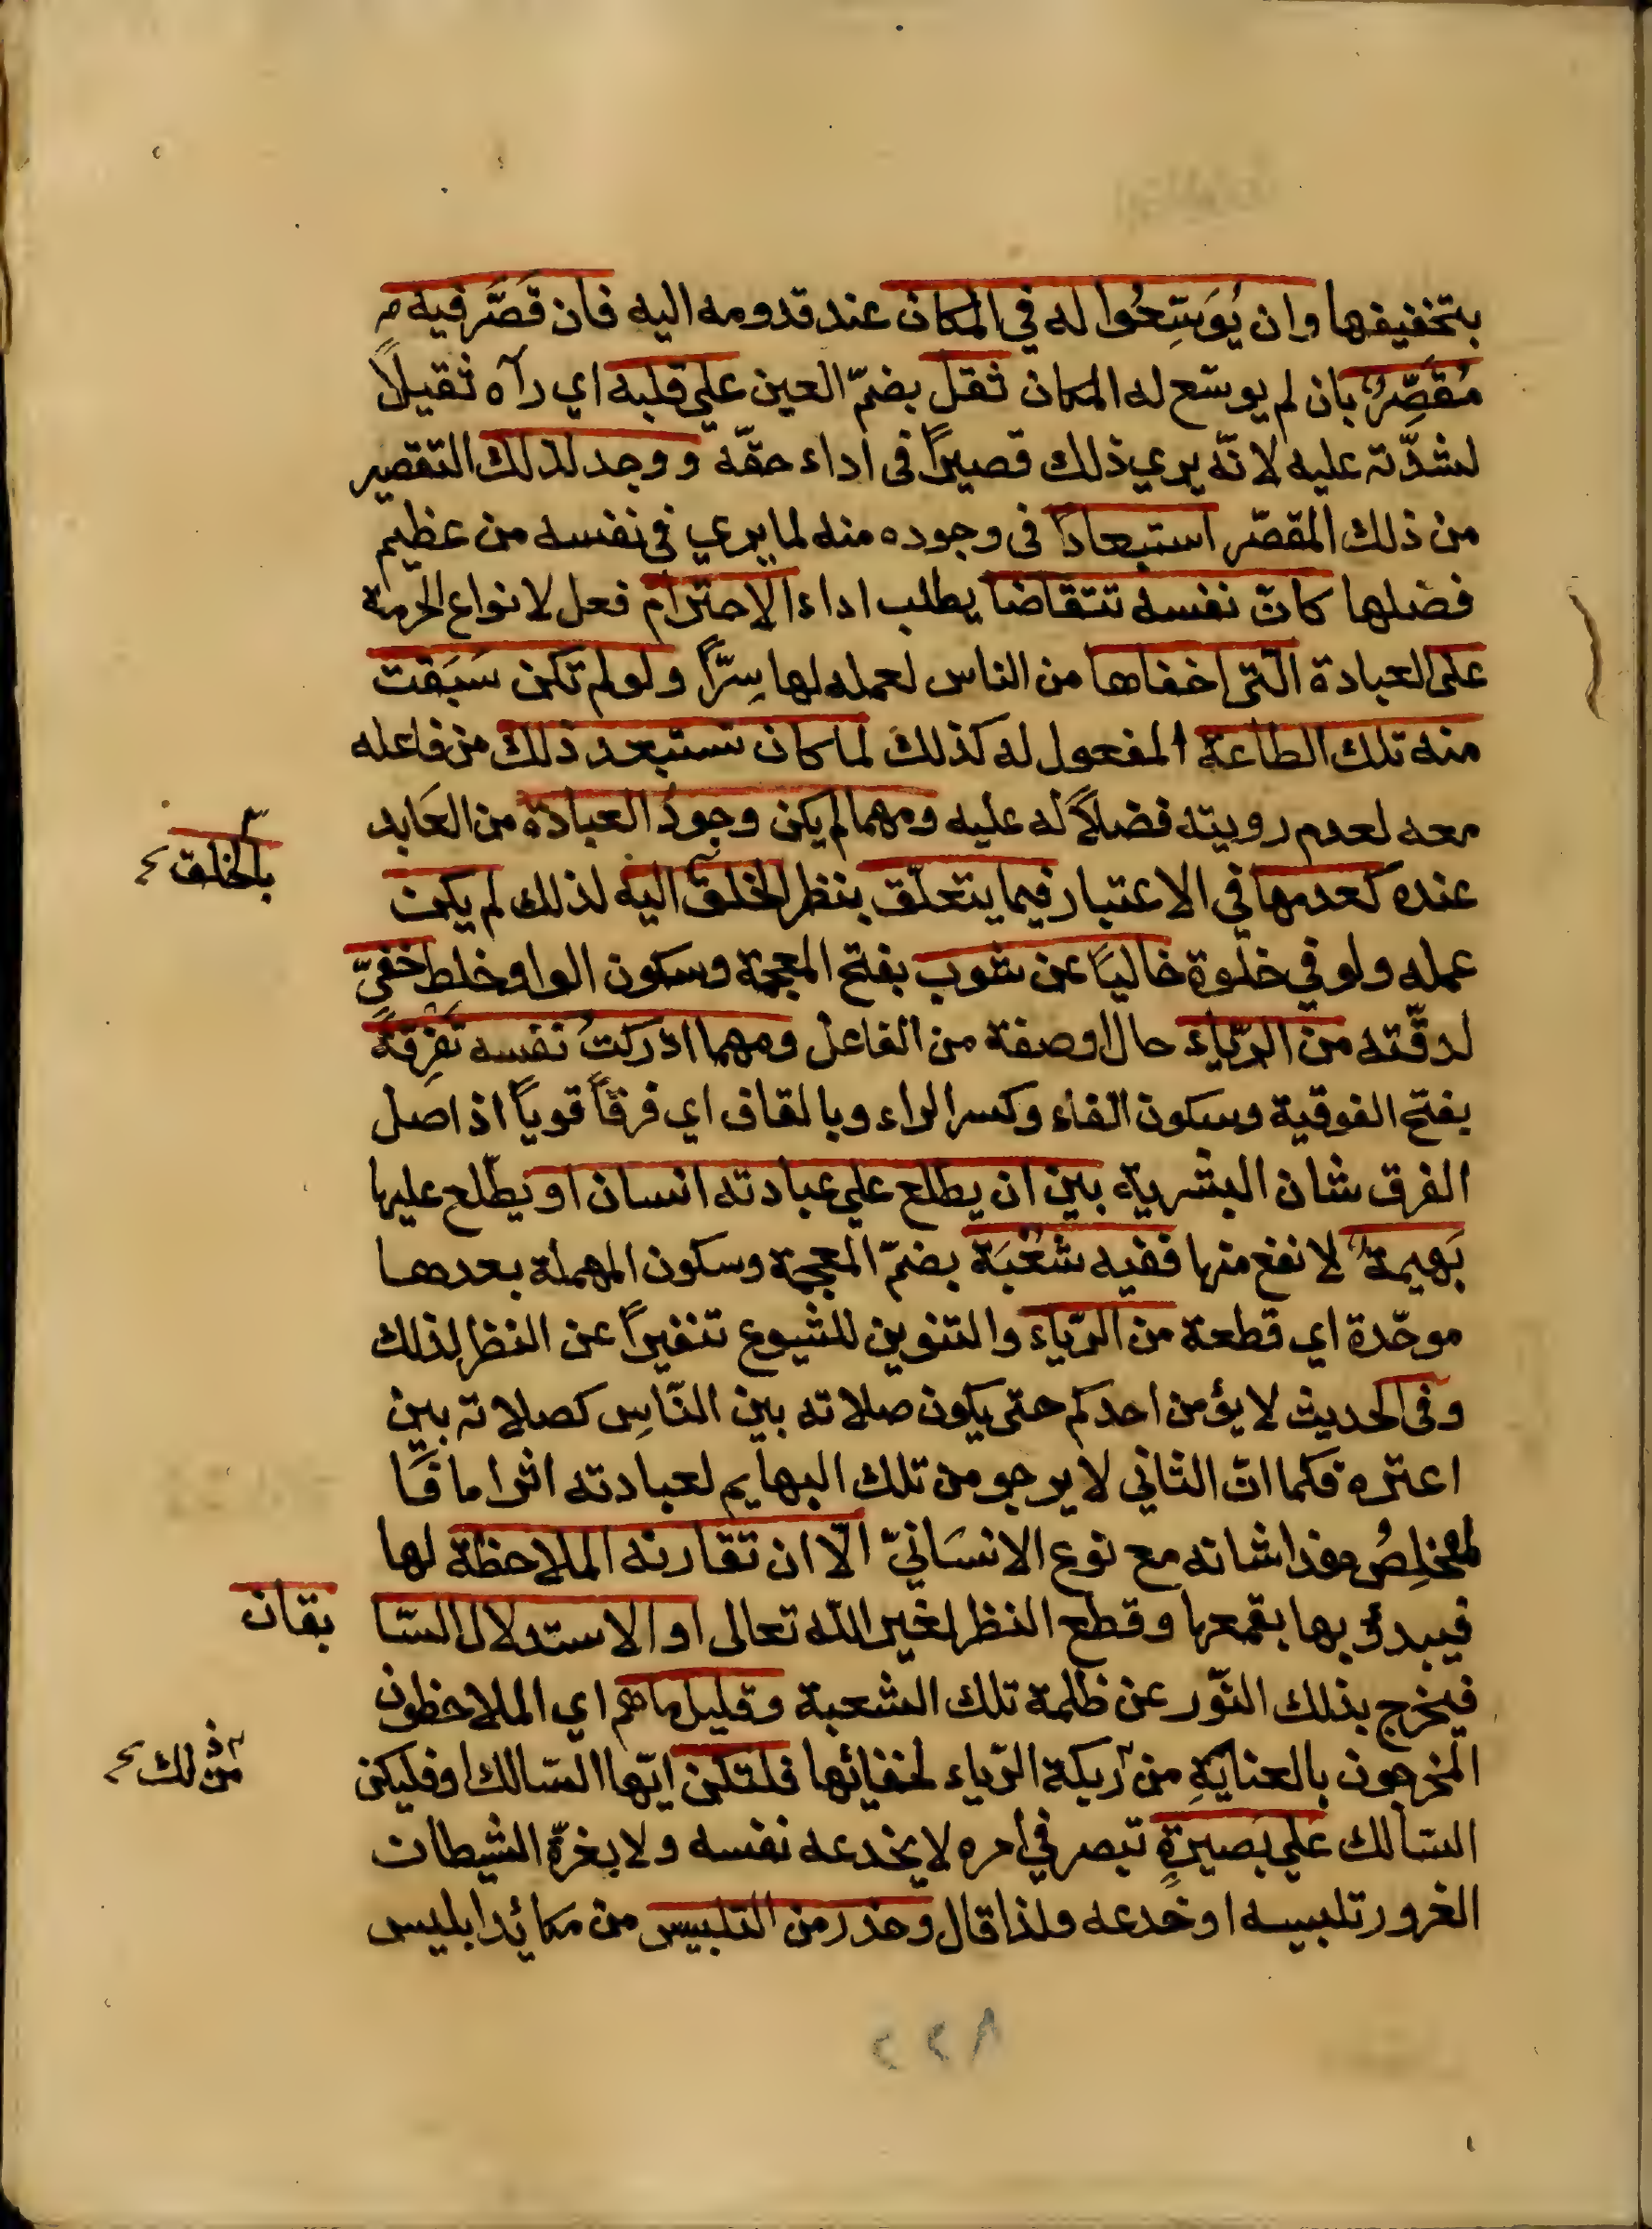 بتخفيفها وان يُوَسِّعُوا له في المكان عند قدومه اليه فان قَصَّر فيه
مُقَصِّرٌ بان لم يوسّع له المكان ثقل بضمّ العين علي قلبه اي رآه ثقيلاً
لشدّته عليه لانّه يري ذلك قصيراً فى اداء حقّه ووجد لذلك التقصير
من ذلك المقصّر استبعاداً فى وجوده منه لما يري في نفسه من عظيم
فضلها كانّ نفسه تتقاضا يطلب اداء الاحترام فعل لانواع الحرمة
على العبادة الّتي اخفاها من الناس لعمله لها سِرّاً ولو لم تكن سَبَقت
منه تلك الطاعة المفعول له كذلك لما كان تستبعد ذلك من فاعله
معه لعدم رويته فضلاً له عليه ومهما لم يكن وجودُ العبادة من العَابد
بالخلق
عنده كعدمها في الاعتبار فيما يتعلّق بنظر الخلق اليه لذلك لم يكن
عمله ولو في خلوة خاليَا عن شوب بفتح المعجمة وسكون الواو خلط خفىّ
لدقّته من الرّياء حال او صفة من الفاعل ومهما ادركتُ نفسه تَفرِقةً
بفتح الفوقية وسكون الفاء وكسر الراء وبالقاف اي فرقاً قوياً اذ اصل
الفرق شان البشرية بين ان يطلع علي عبادته انسان او يطّلع عليها
بَهيمة لا نفع منها ففيه شُعْبَة بضمّ المعجمة وسكون المهملة بعدها
موحّدة اي قطعة من الرّياء والتنوين للشيوع تنفيراً عن النظر لذلك
وفى الحديث لا يؤمن احدكم حتى يكون صلاته بين النّاسِ كصلاته بين
اعتره فكما انّ الثاني لا يرجو من تلك البهايم لعبادته اثرا ما فَا
لمخلِصُ هذا شانه مع نوع الانسَانيّ الّا ان تقارنه الملاحظة لها
فيبدؤ بها بقمعها وقطع النظر لغير الله تعالى او الاستدلال السّا
بقان
فيخرج بذلك النّور عن ظلمة تلك الشعبة وقليل ما هم اي الملاحظون
من ذلك
المخرجون بالعنايةِ من آريكة الرّياء لخفائها فلتكن ايّها السّالك او فليكن
السّالك علي بَصيرةٍ تبصر في امره لا يخدعه نفسه ولا يغرّه الشيطان
الغرور تلبيسه او خدعه ولذا قال وحذر من التلبيس من مكائد ابليس
٢٢٨